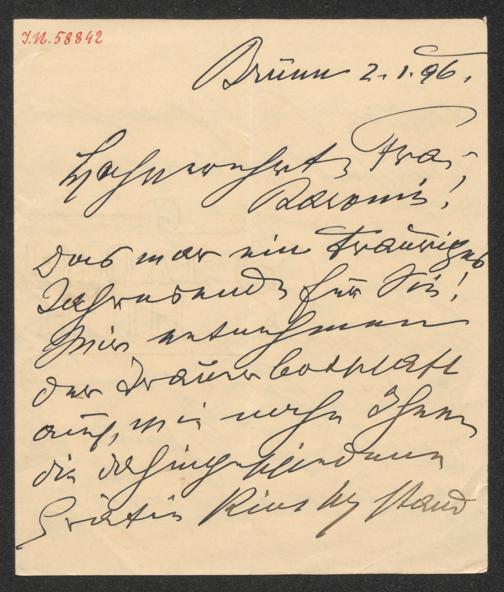 J.N. 58842
Brünn 2.1.96.
Hochverehrte Frau
Baronin!
Das war ein trauriges
Jahresende für Sie!
Wir entnehmen
der Trauerbotschaft
auch, wie nahe Ihnen
die dahingeschiedene
Gräfin Kinsky stand